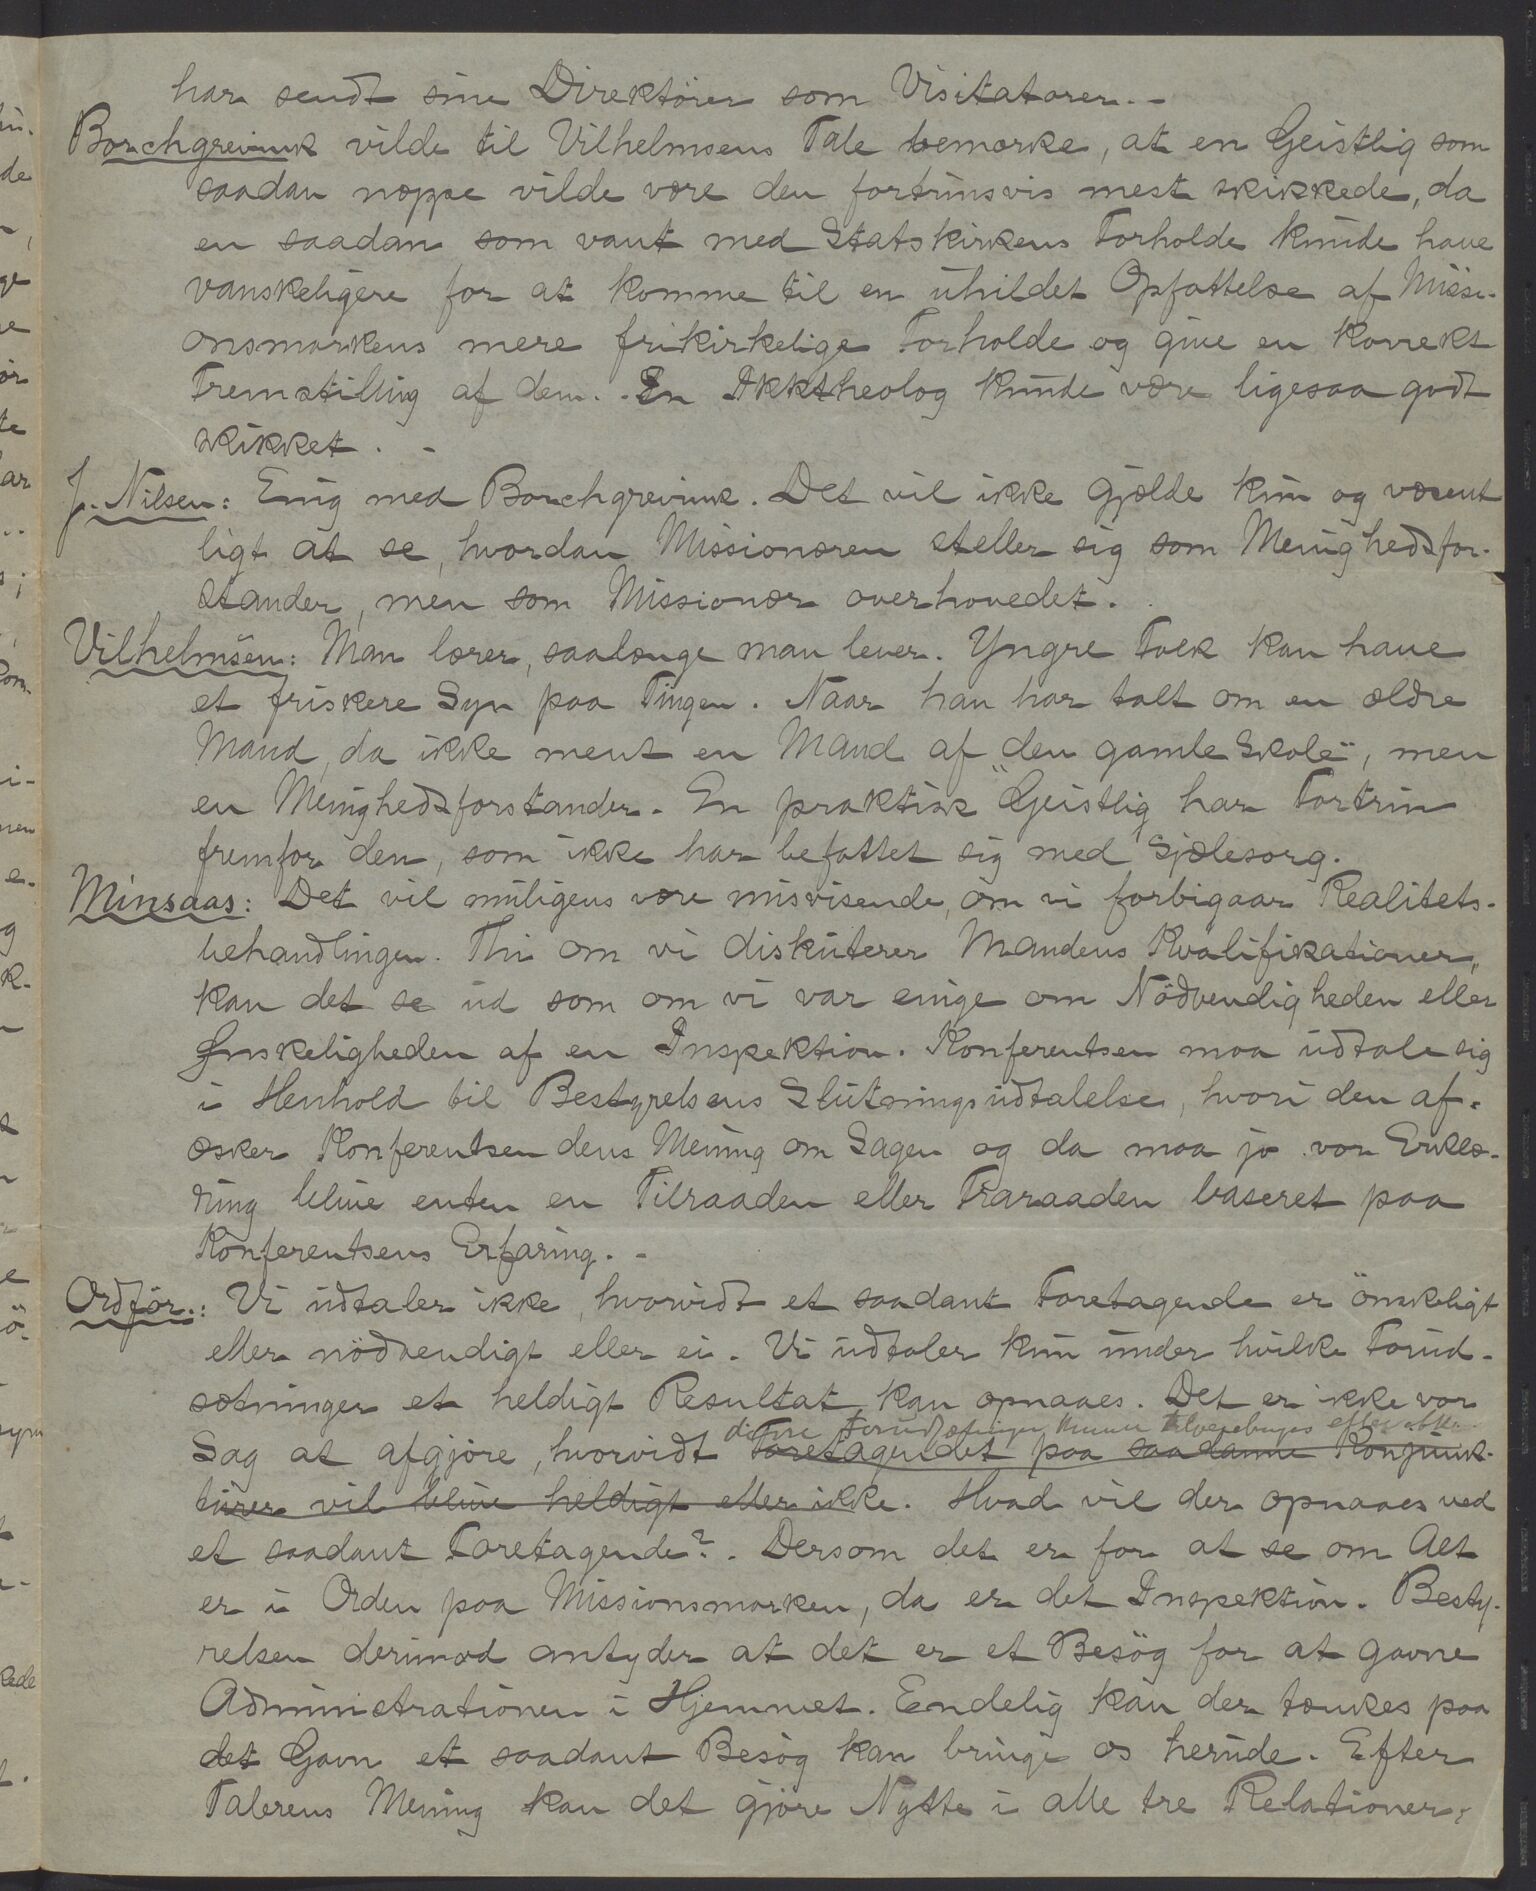 har sendt sine Direktörer som Visitatorer. -
Borchgrevink vilde til Vilhelmsens Tale bemærke, at en Geistlig som
saadan næppe vilde være den fortrinsvis mest skikkede, da
en saadan som vant med Statskirkens Forholde kunde have
vanskeligere for at komme til en uhildet Opfattelse af Missi-
onsmarkens mere frikirkelige Forholde og give en korrekt
Fremstilling af dem. En Ikktheolog kunde være ligesaa godt
skikket. -
J. Nilsen: Enig med Borchgrevink. Det vil ikke gjælde kun og væsent
ligt at se, hvordan Missionæren steller sig som Menighedsfor-
stander, men som Missionær overhovedet.
Vilhelmsen: Man lærer, saalænge man lever. Yngre Folk kan have
et friskere Syn paa Tingen. Naar han har talt om en ældre
Mand, da ikke ment en Mand af „den gamle Skole", men
en Menighedsforstander. En praktisk Geistlig har Fortrin
fremfor den, som ikke har befattet sig med Sjælesorg.
Minsaas: Det vil muligens være misvisende, om vi forbigaar Realitets-
behandlingen. Thi om vi diskuterer Mandens Kvalifikationer,
kan det se ud som om vi var enige om Nödvendigheden eller
Ønskeligheden af en Inspektion. Konferentsen maa udtale sig
i Henhold til Bestyrelsens Slutningsudtalelse, hvori den af-
æsker Konferentsen dens Mening om Sagen og da maa jo vor Erklæ-
ring blive enten en Tilraaden eller Fraraaden baseret paa
Konferentsens Erfaring. -
Ordför.: Vi udtaler ikke, hvorvidt et saadant Foretagende er önskeligt
eller nödvendigt eller ei. Vi udtaler kun under hvilke Forud-
sætninger et heldigt Resultat kan opnaaes. Det er ikke vor
disse Forudsætninger kunne tilveiebringes eller
Sag at afgjöre, hvorvidt Foretagendet paa saadanne Konjunk-
turer vil blive heldigt eller ikke. Hvad vil der opnaaes ved
et saadant Foretagende?. Dersom det er for at se om Alt
er i Orden paa Missionsmarken, da er det Inspektion. Besty-
relsen derimod antyder at det er et Besög for at gavne
Administrationen i Hjemmet. Eendelig kan der tænkes paa
det Gavn et saadant Besög kan bringe os herude. Efter
Talerens Mening kan det gjöre Nytte i alle tre Relationer,